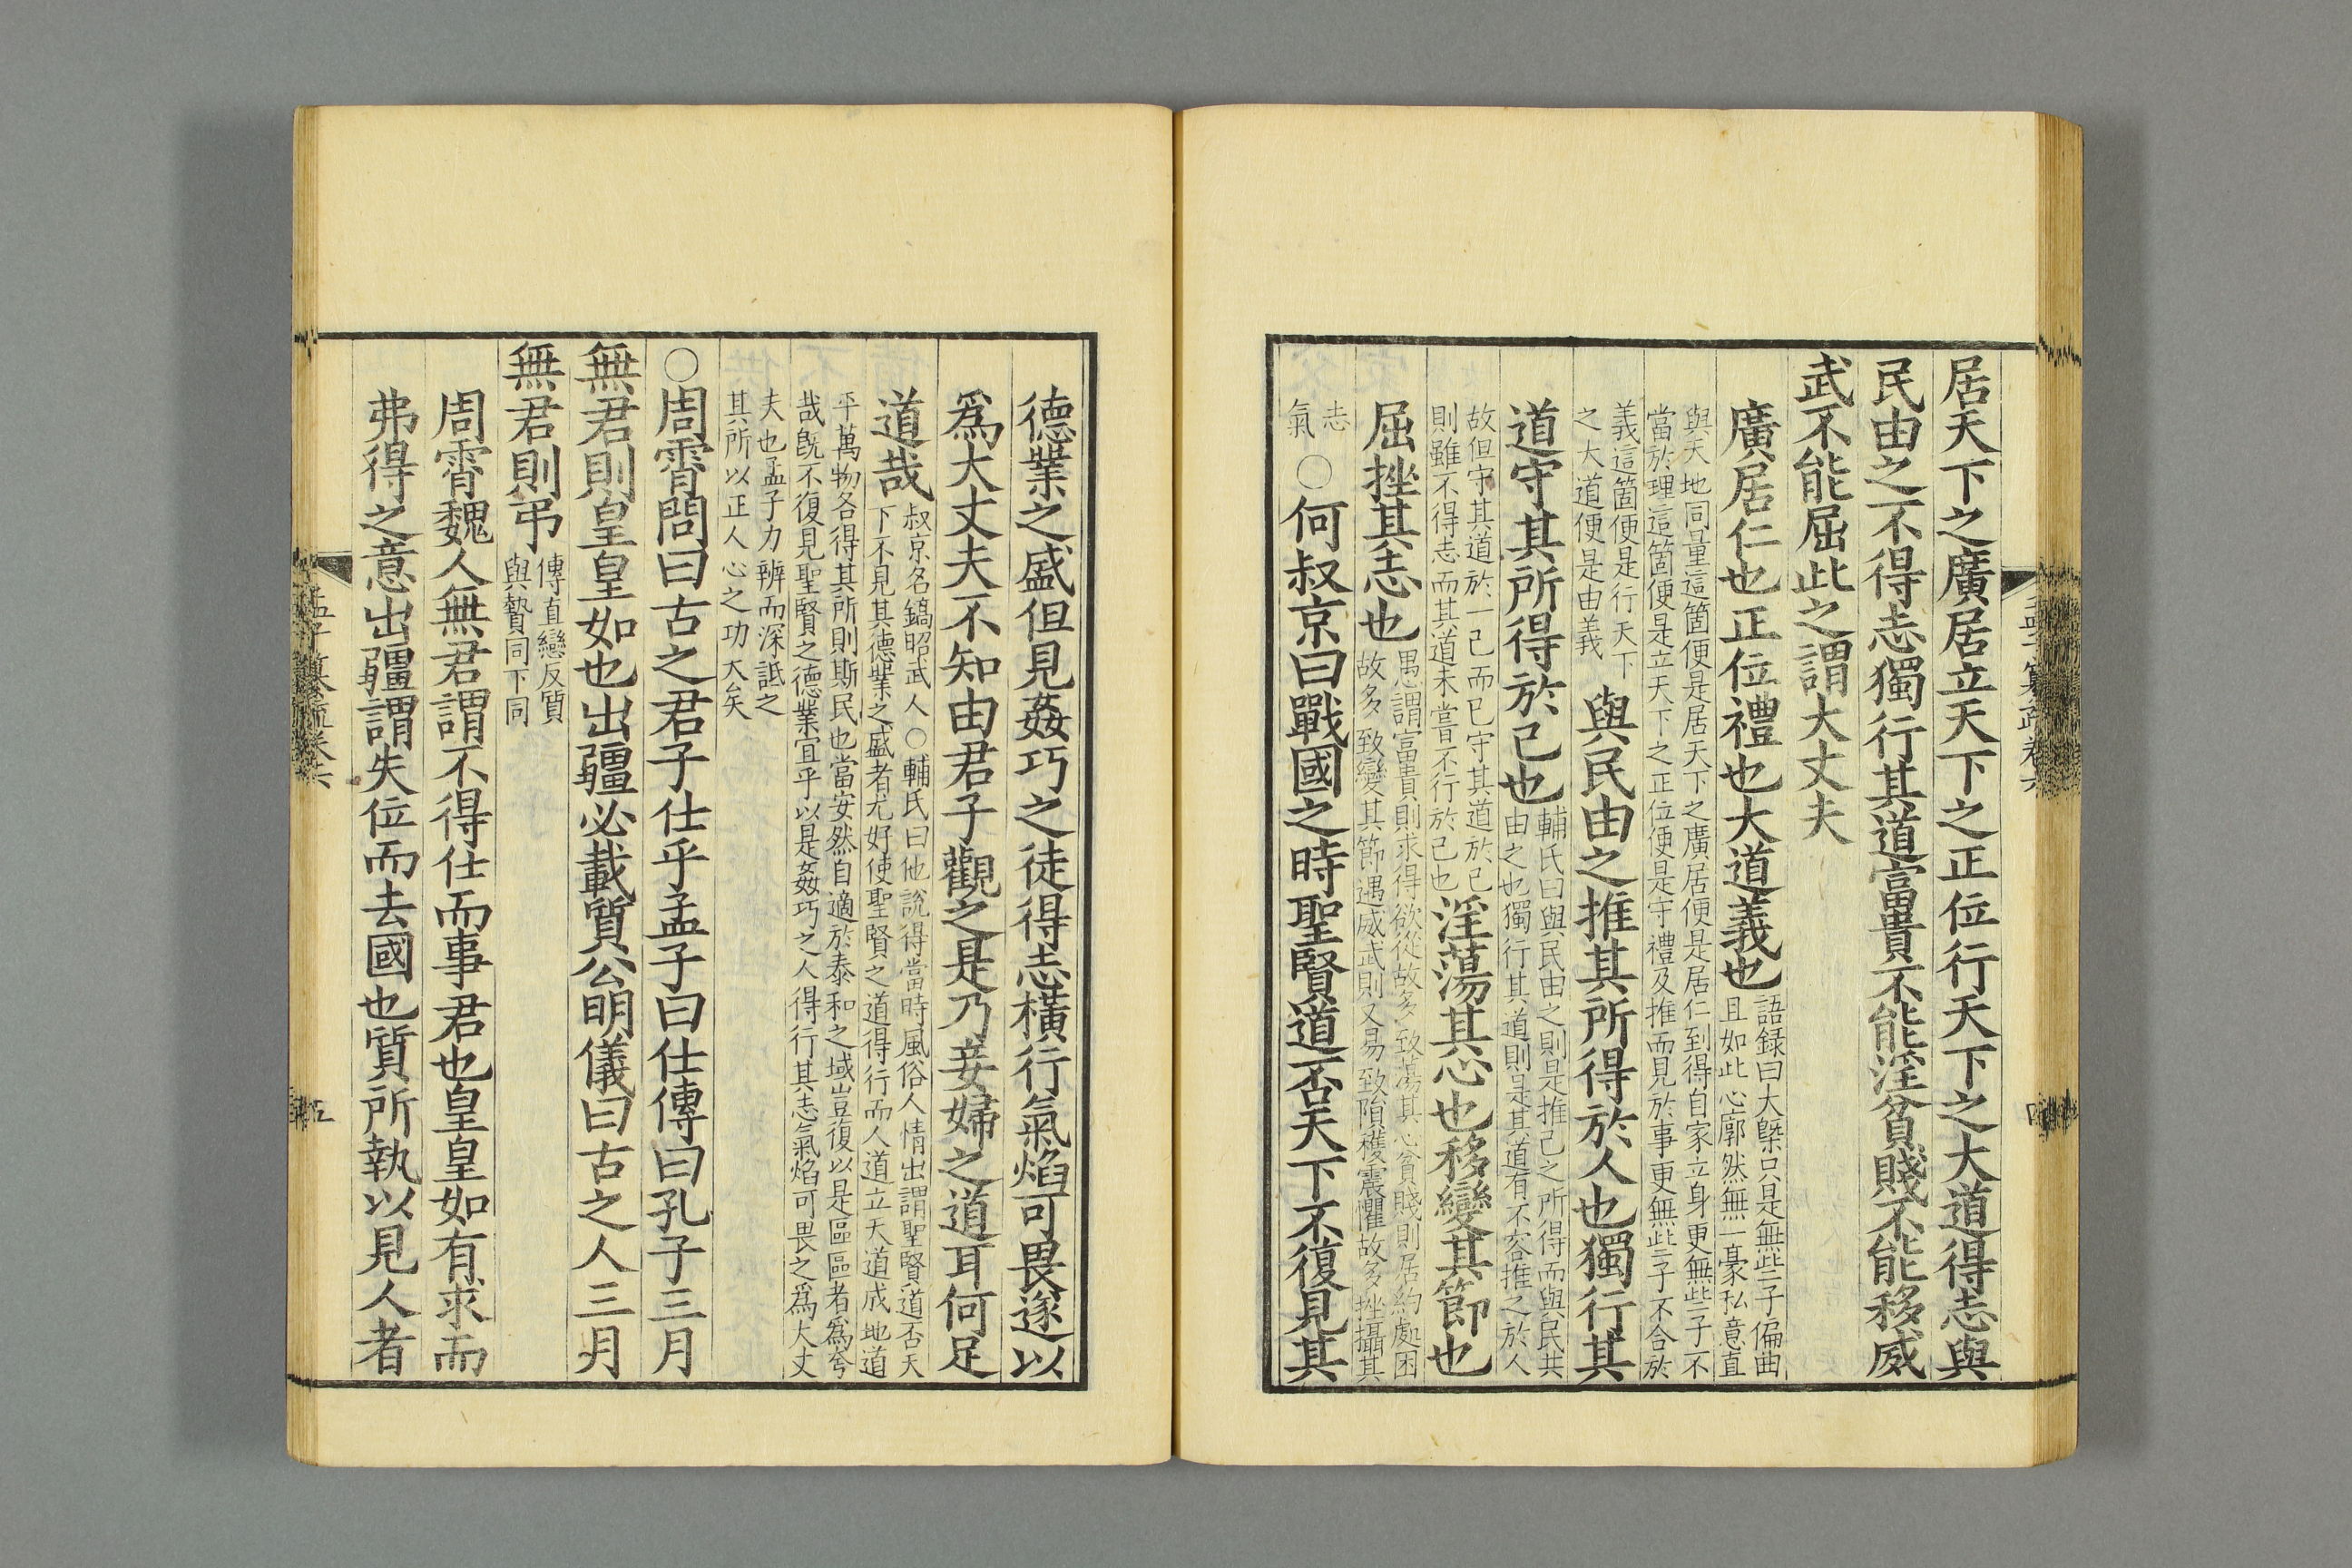 居天下之廣居立天下之正位行天下之大道得志與
民由之不得志獨行其道富貴不能淫貧賤不能移威
武不能屈此之謂大丈夫
廣居仁也正位禮也大道義也
語録曰大槩只是無些子偏曲
且如此心廓然無一豪私意直
與天地同量這箇便是居天下之廣居便是居仁到得自家立身更無些子不
當於理這箇便是立天下之正位便是守禮及推而見於事更無些子不合於
義這箇便是行天下
之大道便是由義
與民由之推其所得於人也獨行其
道守其所得於己也
輔氏曰與民由之則是推己之所得而與民共
由之也獨行其道則是其道有不容推之於人
故但守其道於一己而已守其道於己
則雖不得志而其道未嘗不行於己也
淫蕩其心也移變其節也
屈挫其志也
愚謂富貴則求得欲從故多致蕩其心貧賤則居約處困
故多致變其節遇威武則又易致隕穫震懼故多挫攝其
志
氣
○何叔京曰戰國之時聖賢道否天下不復見其
德業之盛但見姦巧之徒得志橫行氣焰可畏遂以
爲大丈夫不知由君子觀之是乃妾婦之道耳何足
道哉
叔京名鎬昭武人○輔氏曰他說得當時風俗人情出謂聖賢道否天
下不見其德業之盛者尤好使聖賢之道得行而人道立天道成地道
平萬物各得其所則斯民也當安然自適於泰和之域豈復以是區區者爲夸
哉旣不復見聖賢之德業宜乎以是姦巧之人得行其志氣焰可畏之爲大丈
夫也孟子力辨而深詆之
其所以正人心之功大矣
○周霄問曰古之君子仕乎孟子曰仕傳曰孔子三月
無君則皇皇如也出疆必載質公明儀曰古之人三月
無君則弔
傳直戀反質
與贄同下同
周霄魏人無君謂不得仕而事君也皇皇如有求而
弗得之意出疆謂失位而去國也質所執以見人者
孟子纂疏卷六
五